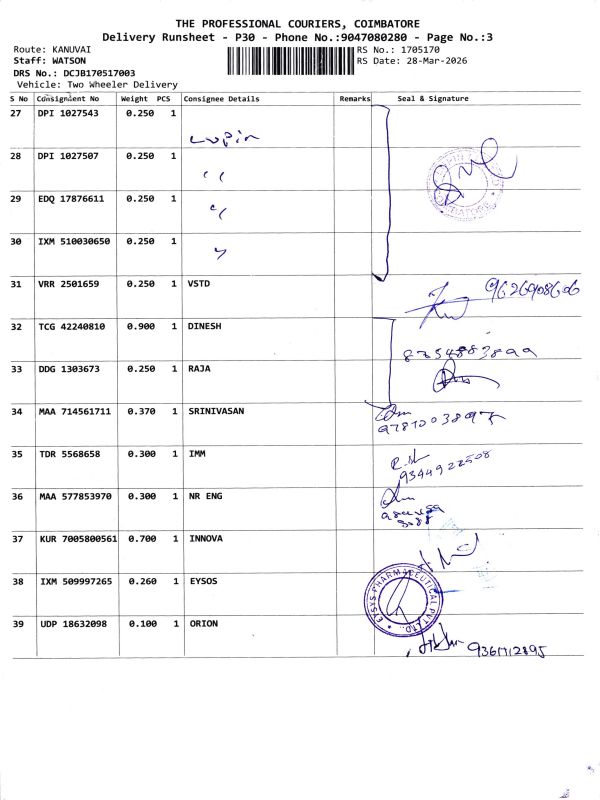 THE PROFESSIONAL COURIERS, COIMBATORE
Delivery Runsheet - P30 - Phone No.:9047080280 - Page No.:3
Route: KANUVAI
Staff: WATSON
DRS No.: DCJB170517003
Vehicle: Two Wheeler Delivery
RS No.: 1705170
RS Date: 28-Mar-2026
S No Consignment No Weight PCS Consignee Details Remarks Seal & Signature
27 DPI 1027543 0.250 1 Lupin
28 DPI 1027507 0.250 1 "
29 EDQ 17876611 0.250 1 "
30 IXM 510030650 0.250 1 "
31 VRR 2501659 0.250 1 VSTD
32 TCG 42240810 0.900 1 DINESH
33 DDG 1303673 0.250 1 RAJA
34 MAA 714561711 0.370 1 SRINIVASAN
35 TDR 5568658 0.300 1 IMM 9344922508
36 MAA 577853970 0.300 1 NR ENG
37 KUR 7005800561 0.700 1 INNOVA
38 IXM 509997265 0.260 1 EYSOS
EYSYS PHARMACEUTICAL PVT. LTD.
39 UDP 18632098 0.100 1 ORION